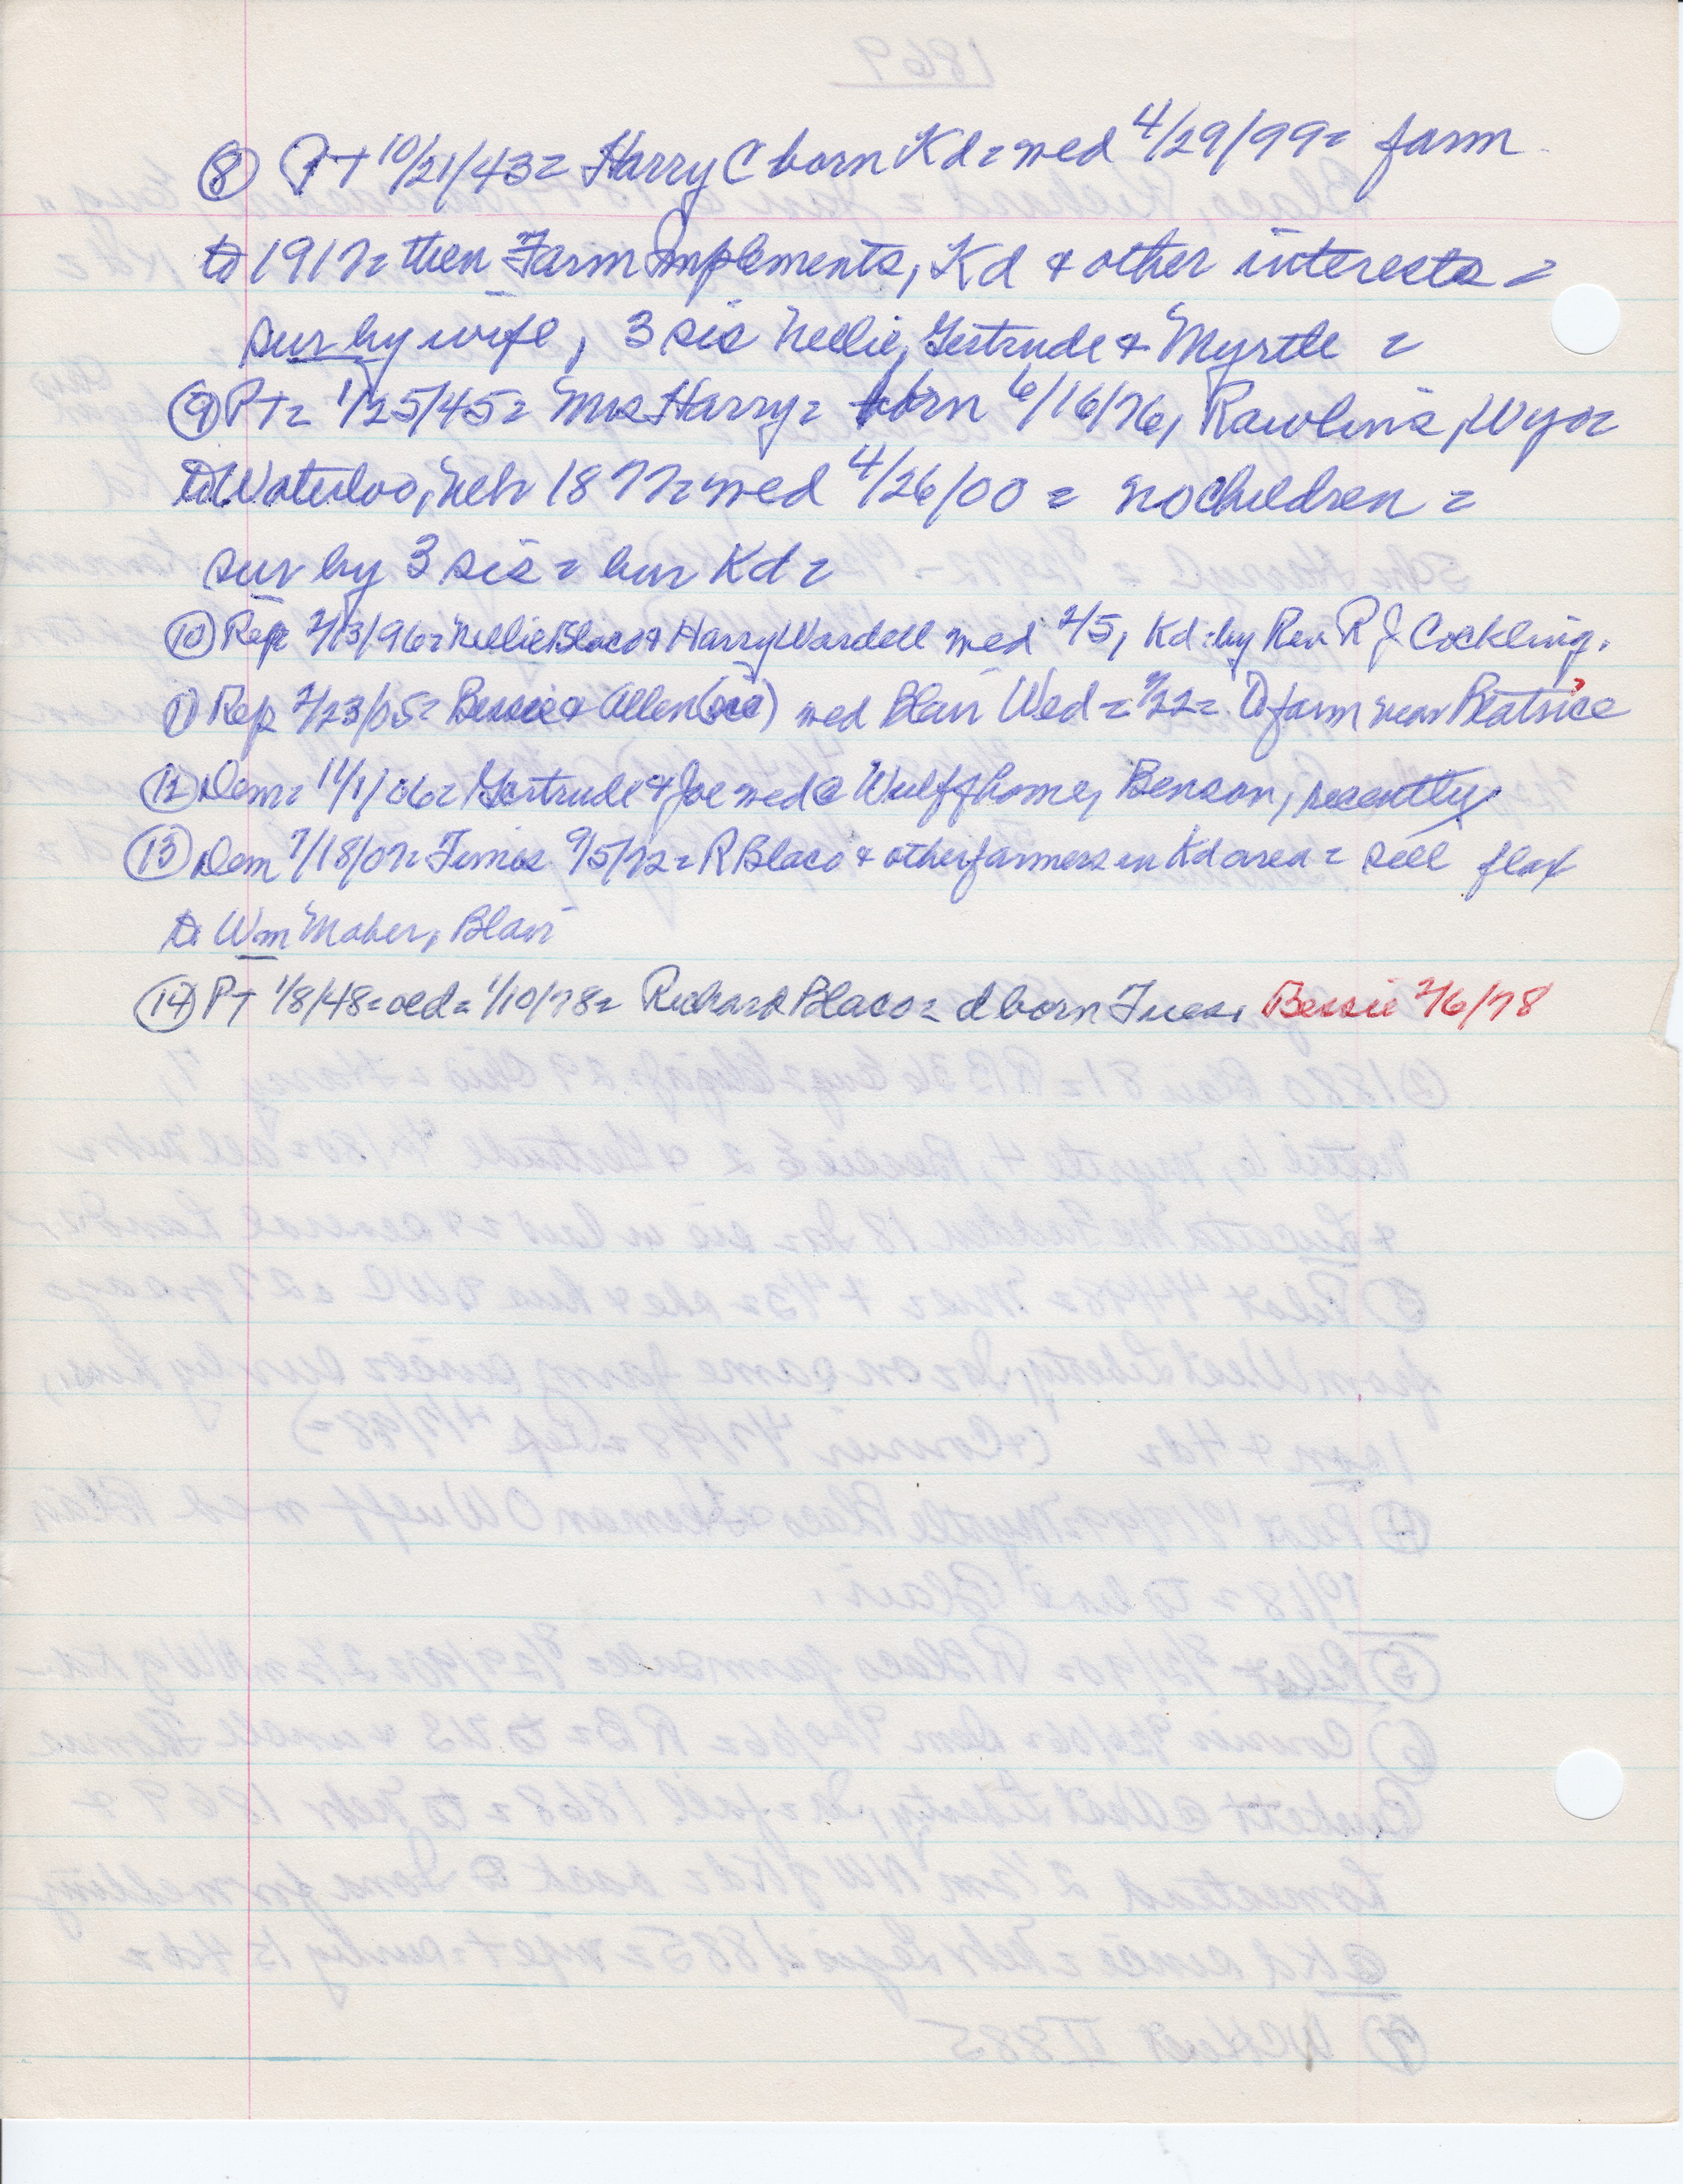 ⑧ PT 10/21/43= Harry C born Kd= wed 4/29/99= farm
to 1917= then Farm Implements, Kd & other interests =
sur by wife, 3 sis Nellie, Gertrude & Myrtle =
⑨ PT= 1/25/45= Mrs Harry= born 6/16/76, Rawlins, Wyo=
to Waterloo, Neb 1877= wed 4/26/00 = no children =
sur by 3 sis = bur Kd =
⑩ Rep 2/13/96= Nellie Blaco & Harry Wardell wed 2/5, Kd by Rev. R J Cockling.
⑪ Rep 2/23/05= Bessie & Allen (sic) wed Blair Wed = 2/22= to farm near Beatrice
⑫ Dem= 11/1/06= Gertrude & Joe wed @ Wulff home, Benson, recently
⑬ Dem 7/18/07= Times 9/5/72= R Blaco & other farmers in Kd area = sell flax
to Wm Maher, Blair
⑭ PT 1/8/48= old= 1/10/78= Richard Blaco= d born Tues. Bessie 2/6/78